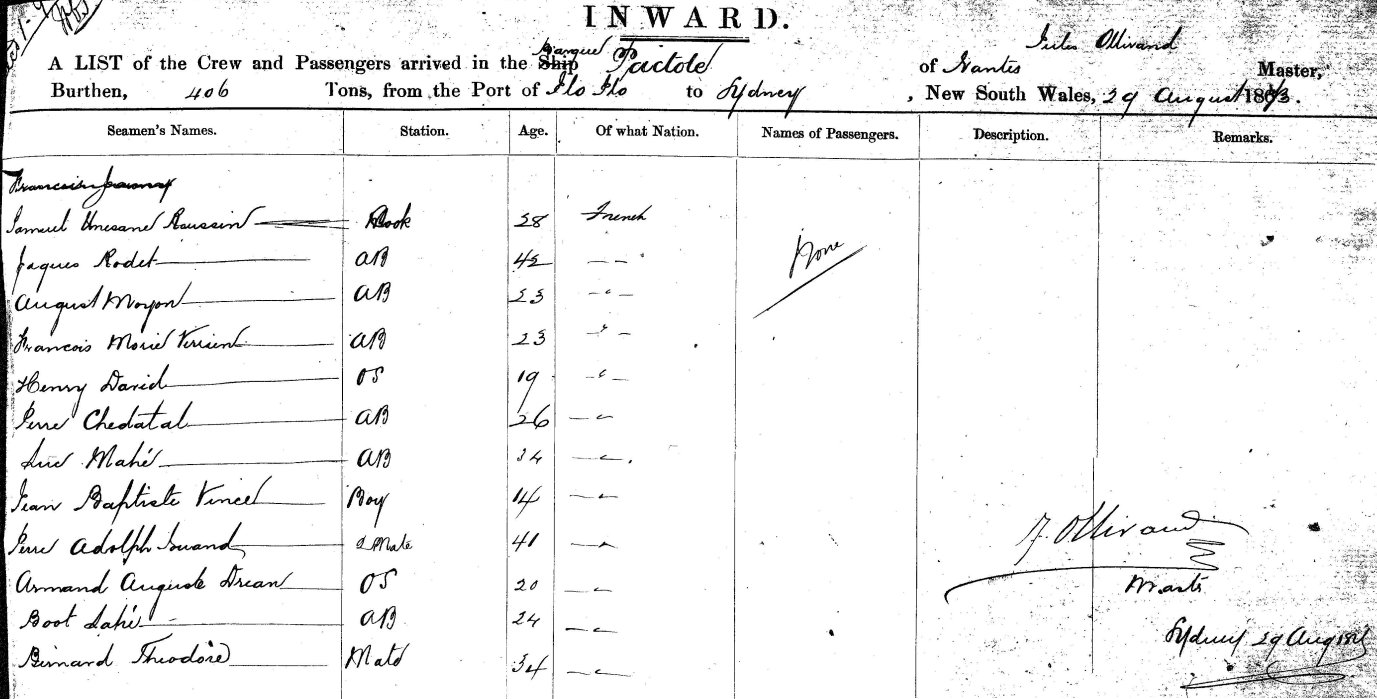 INWARD.
Jules Ollivaud
A LIST of the Crew and Passengers arrived in the Ship Barque Pactole of Nantes Master,
Burthen, 406 Tons, from the Port of Ilo Ilo to Sydney, New South Wales, 29 August 1873.
Seamen's Names. Station. Age. Of what Nation. Names of Passengers. Description. Remarks.
Samuel Roussin Cook 28 French
None
Jaques Rodet AB 42 — —
August Moyon AB 23 — " —
Francois Marie AB 23 " —
Henry David OS 19 — " —
Pierre Chedatal AB 26 — "
Luc Mahé AB 34 — "
Jean Baptiste Vincel Boy 14 — "
Pierre Adolph 2 Mate 41 — "
J. Ollivaud
Armand Auguste Drean OS 20 — "
Master
Boot Lahé AB 24 — "
Sydney 29 Aug 1873
Bernard Theodore Mate 34 — "